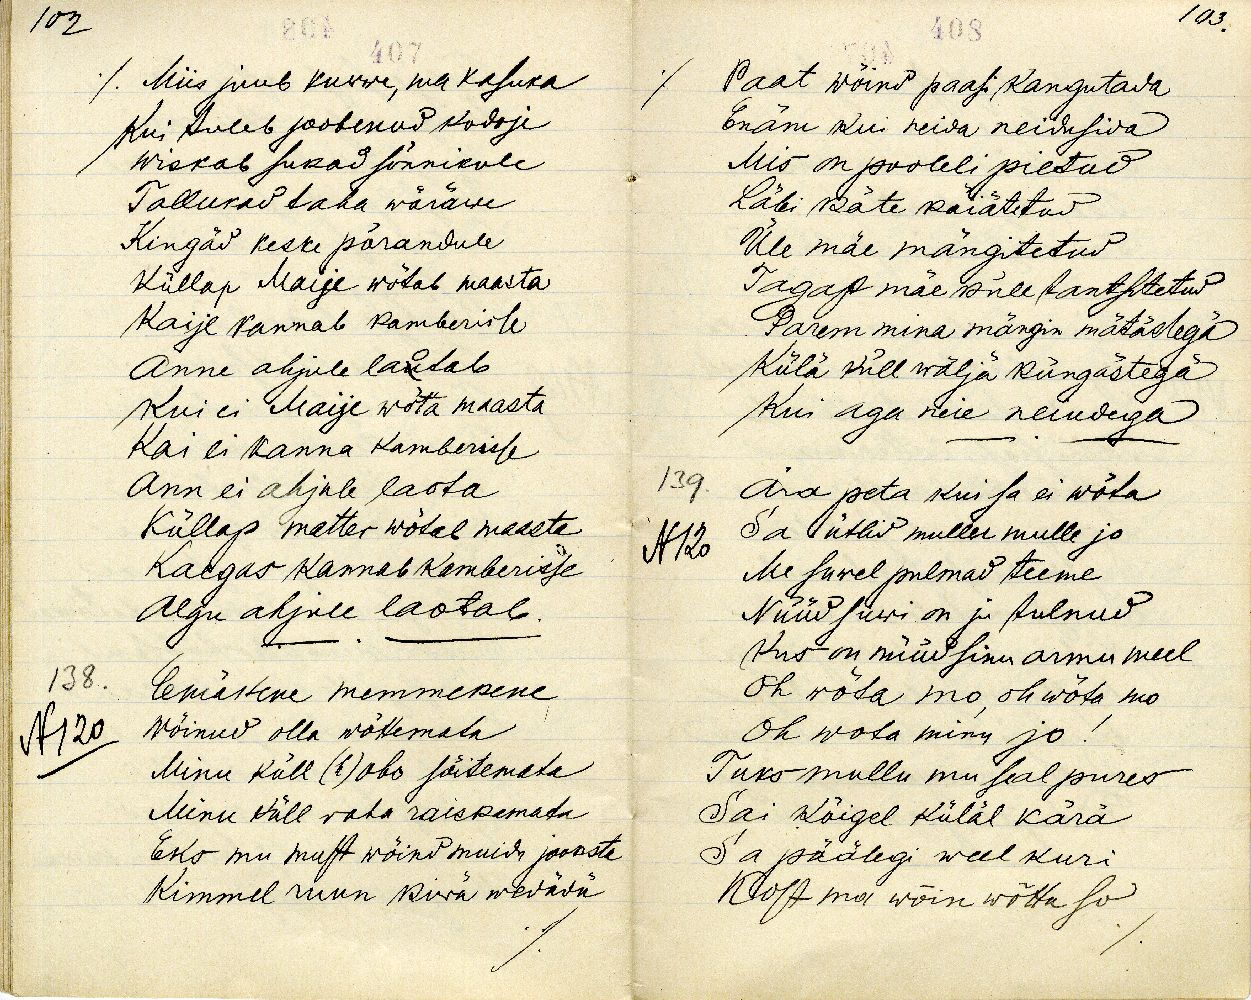 102
407
./. Miis juub kuwwe, ma kasuka
Kui tuleb joobenud kodoje
Wiskab sukad sõnnikule
Tallukad taha wäräwe
Kingäd keske põrandule
Küllap Maije wõtab maasta
Kaije kannab kamberisse
Anne ahjule laotab
Kui ei Maije wõta maasta
Kai ei kanna kamberisse
Ann ei ahjule laota
Küllap mätter wõtab maasta
Kaegas kannab kamberisse
Algu ahjule laotab.
138.
N 120
Emäkene memmekene
Wõinud olla wõttemata
Minu küll (h)obo sõitemata
Minu küll raha raiskamata
Eks mu must wõind muida joosta
Kimmel ruun kiwä wedädä
./.
408
103.
./. Paat wõind paasi kangutada
Enäm kui neida neidusida
Mis on pooleli pietud
Läbi käte käiätetud
Üle mäe mängitetud
Tagast mäe küll tantsitetud
Parem mina mängin mätästegä
Külä küll wäljä küngästegä
Kui aga neie neiudega
139.
N 120
Ära peta kui sa ei wõta
Sa ütlid mullu mulle jo
Me suwel pulmad teeme
Nüüd suwi on ju tulnud
Kus on nüüd sinu armu meel
Oh wõta mo, oh wõta mo
Oh wota minu jo!
Tuks mullu mu seal pures
Sai kõigel küläl kärä
Sa päälegi weel kuri
Kost ma wõin wõtta so
./.